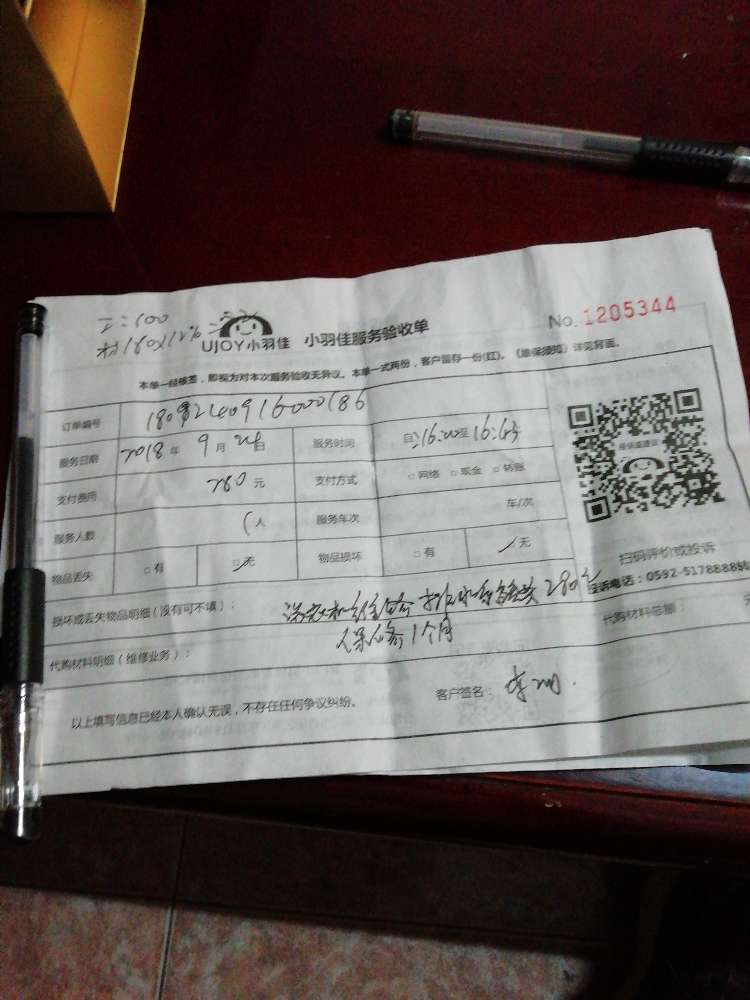 工:100
材180×12%=
UJOY小羽佳 小羽佳服务验收单
No. 1205344
本单一经签签，即视为对本次服务验收无异议。本单一式两份，客户留存一份(红)。《维保须知》详见背面。
订单编号
服务日期 2018年 9月24日 服务时间 自:16:20至16:45
支付费用 280元 支付方式 □网络 □现金 □转账
服务人数 1人 服务车次 车/次
物品丢失 □有 □无 物品损坏 □有 无
扫码评价或投诉
投诉电话：0592-5178888转
损坏或丢失物品明细（没有可不填）： 洗衣机维修 280元
保修1个月
代购材料明细（维修业务）： 代购材料总额： 元
以上填写信息已经本人确认无误，不存在任何争议纠纷。 客户签名：